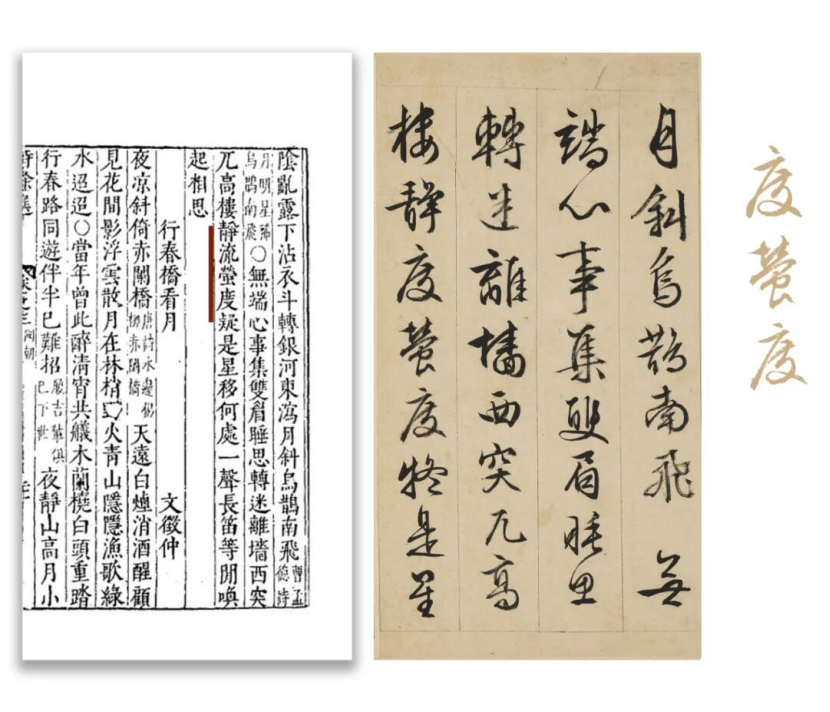 陰亂露下沾衣斗轉銀河東瀉月斜烏鵲南飛曹孟德詩
月明星稀烏鵲南飛〇無端心事集雙眉睡思轉迷離墻西突
兀高樓靜流螢度疑是星移何處一聲長笛等閒喚
起相思
行春橋看月 文徵仲
夜凉斜倚赤闌橋唐詩水邊楊柳赤闌橋天遠白煙消酒醒顧
見花間影浮雲散月在林梢火青山隱隱漁歌綠
水迢迢〇當年曾此醉清宵共艤木蘭橈白頭重踏
行春路同遊伴半已難招俱已下世夜靜山高月小
月斜烏鵲南飛 無
端心事集雙眉睡思
轉迷離墻西突兀高
樓靜度螢度疑是星
度螢度